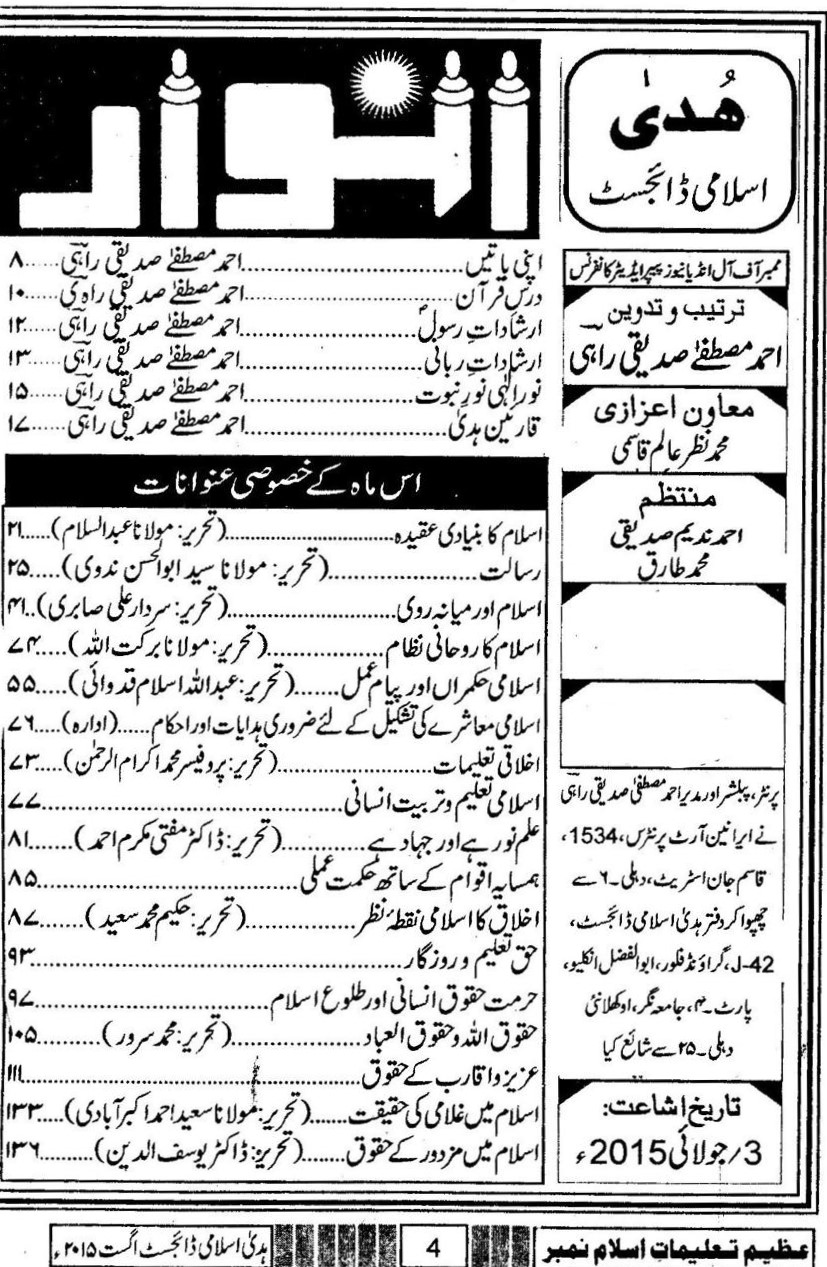 ھُدیٰ
اسلامی ڈائجسٹ
ممبر آف آل انڈیا نیوز پیپر ایڈیٹر کانفرنس
ترتیب و تدوین
احمد مصطفےٰ صدیقی راہی
معاون اعزازی
محمد نظر عالم قاسمی
منتظم
احمد ندیم صدیقی
محمد طارق
پرنٹر، پبلشر اور مدیر احمد مصطفیٰ صدیقی راہی
نے ایرانین آرٹ پرنٹرس، 1534،
قاسم جان اسٹریٹ، دہلی۔۶ سے
چھپوا کر دفتر ہدیٰ اسلامی ڈائجسٹ،
J-42، گراؤنڈ فلور، ابوالفضل انکلیو،
پارٹ۔۴، جامعہ نگر، اوکھلا نئی
دہلی۔۲۵ سے شائع کیا
تاریخ اشاعت:
3/جولائی 2015ء
انوار
اپنی باتیں......احمد مصطفےٰ صدیقی راہی......۸
درس قرآن......احمد مصطفےٰ صدیقی راہی......۱۰
ارشاداتِ رسولؐ......احمد مصطفےٰ صدیقی راہی......۱۲
ارشاداتِ ربانی......احمد مصطفےٰ صدیقی راہی......۱۳
نور الٰہی نور نبوت......احمد مصطفےٰ صدیقی راہی......۱۵
قارئین ہدیٰ......احمد مصطفےٰ صدیقی راہی......۱۷
اس ماہ کے خصوصی عنوانات
اسلام کا بنیادی عقیدہ......(تحریر: مولانا عبدالسلام)......۲۱
رسالت......(تحریر: مولانا سید ابوالحسن ندوی)......۲۵
اسلام اور میانہ روی......(تحریر: سردار علی صابری)..۴۱
اسلام کا روحانی نظام......(تحریر: مولانا برکت اللہ)....۷۴
اسلامی حکمراں اور پیام عمل......(تحریر: عبداللہ اسلام قدوائی)......۵۵
اسلامی معاشرے کی تشکیل کے لئے ضروری ہدایات اور احکام......(ادارہ)......۷۶
اخلاقی تعلیمات......(تحریر: پروفیسر محمد اکرام الرحمٰن)....۷۳
اسلامی تعلیم و تربیت انسانی......۷۷
علم نور ہے اور جہاد ہے......(تحریر: ڈاکٹر مفتی مکرم احمد)......۸۱
ہمسایہ اقوام کے ساتھ حکمت عملی......۸۵
اخلاق کا اسلامی نقطۂ نظر......(تحریر: حکیم محمد سعید)......۸۷
حق تعلیم و روزگار......۹۳
حرمت حقوق انسانی اور طلوع اسلام......۹۷
حقوق اللہ و حقوق العباد......(تحریر: محمد سرور)......۱۰۵
عزیز و اقارب کے حقوق......۱۱۱
اسلام میں غلامی کی حقیقت......(تحریر: مولانا سعید احمد اکبر آبادی)....۱۳۳
اسلام میں مزدور کے حقوق......(تحریر: ڈاکٹر یوسف الدین)......۱۳۶
عظیم تعلیمات اسلام نمبر
4
ہدیٰ اسلامی ڈائجسٹ اگست ۲۰۱۵ء